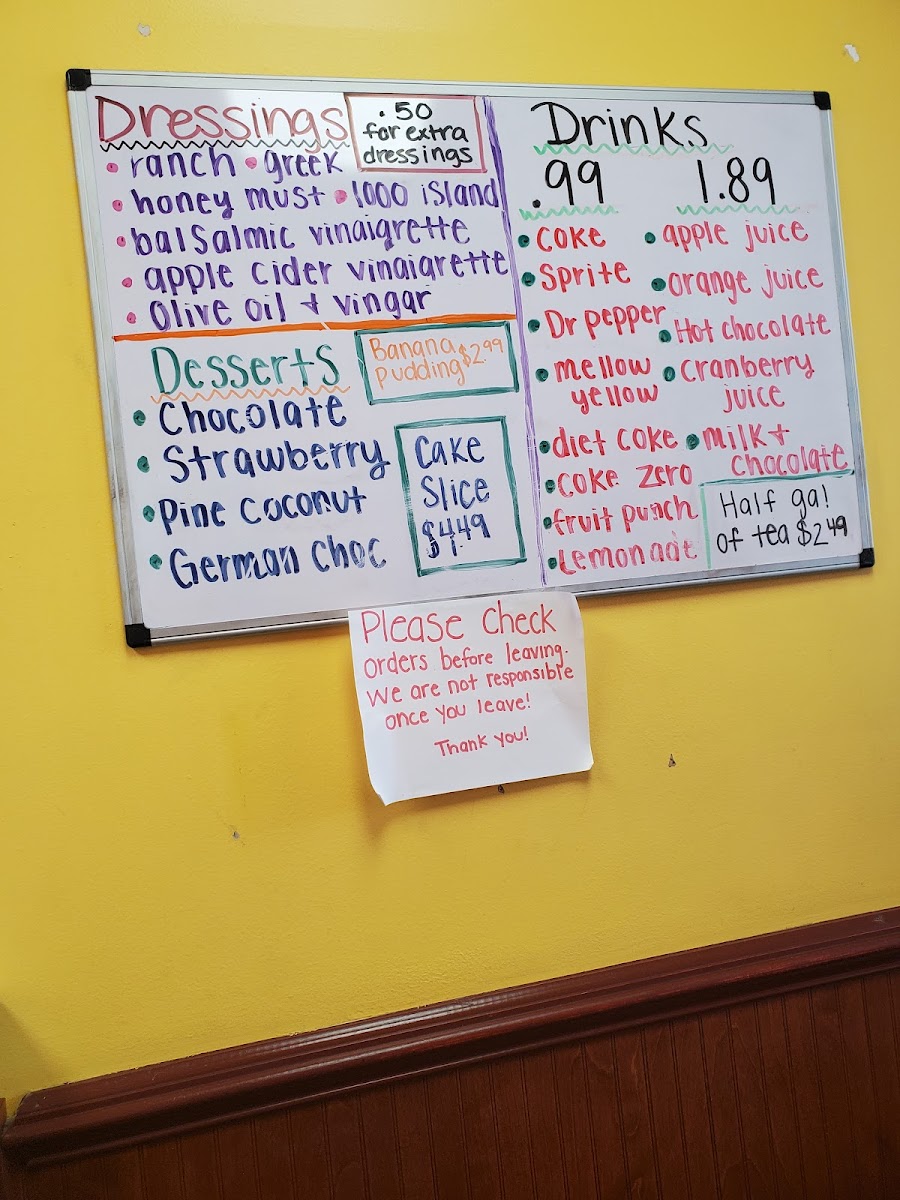 Dressings
.50
for extra
dressings
ranch • greek
honey must • 1000 island
balsalmic vinaigrette
apple cider vinaigrette
Olive oil + vingar
Desserts
Banana
pudding $2.99
Chocolate
Strawberry
Pine coconut
German choc
Cake
Slice
$4.49
Drinks
.99
coke
Sprite
Dr pepper
mellow
yellow
diet coke
coke zero
fruit punch
Lemonade
1.89
apple juice
orange juice
Hot chocolate
cranberry
juice
milk +
chocolate
Half gal
of tea $2.49
Please Check
orders before leaving.
We are not responsible
once you leave!
Thank you!